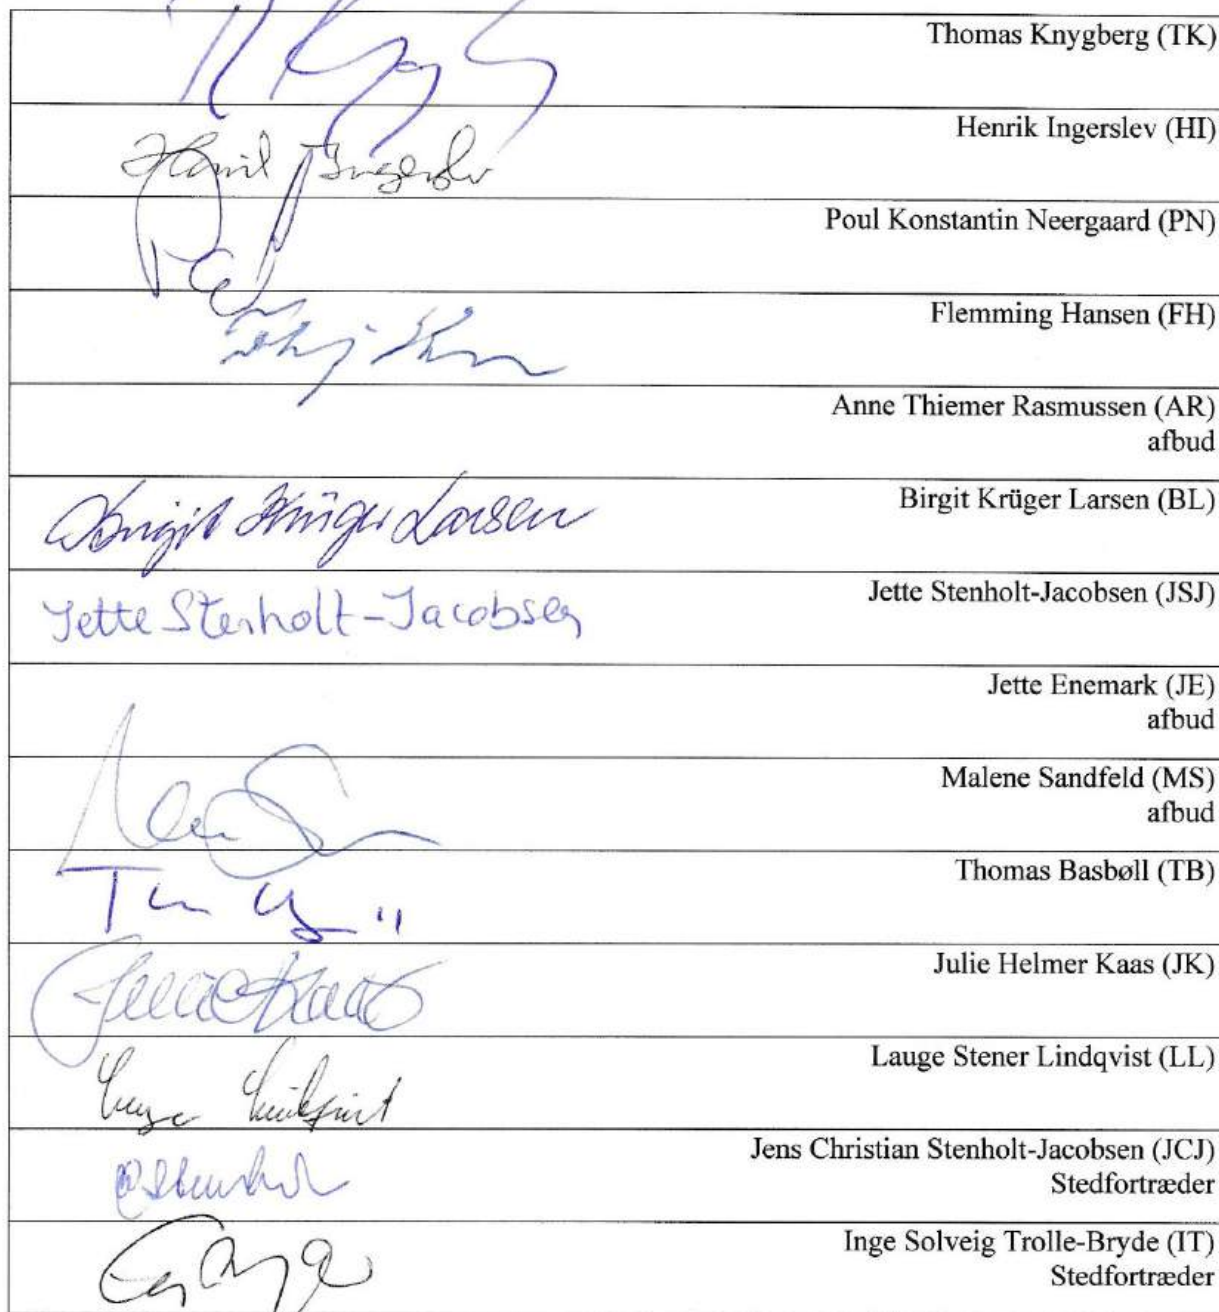 Thomas Knygberg (TK)
Henrik Ingerslev (HI)
Poul Konstantin Neergaard (PN)
Flemming Hansen (FH)
Anne Thiemer Rasmussen (AR)
afbud
Birgit Krüger Larsen
Birgit Krüger Larsen (BL)
Jette Stenholt-Jacobsen
Jette Stenholt-Jacobsen (JSJ)
Jette Enemark (JE)
afbud
Malene Sandfeld (MS)
afbud
Thomas Basbøll (TB)
Julie Kaas
Julie Helmer Kaas (JK)
Lauge Stener Lindqvist (LL)
Jens Christian Stenholt-Jacobsen (JCJ)
Stedfortræder
Inge Solveig Trolle-Bryde (IT)
Stedfortræder